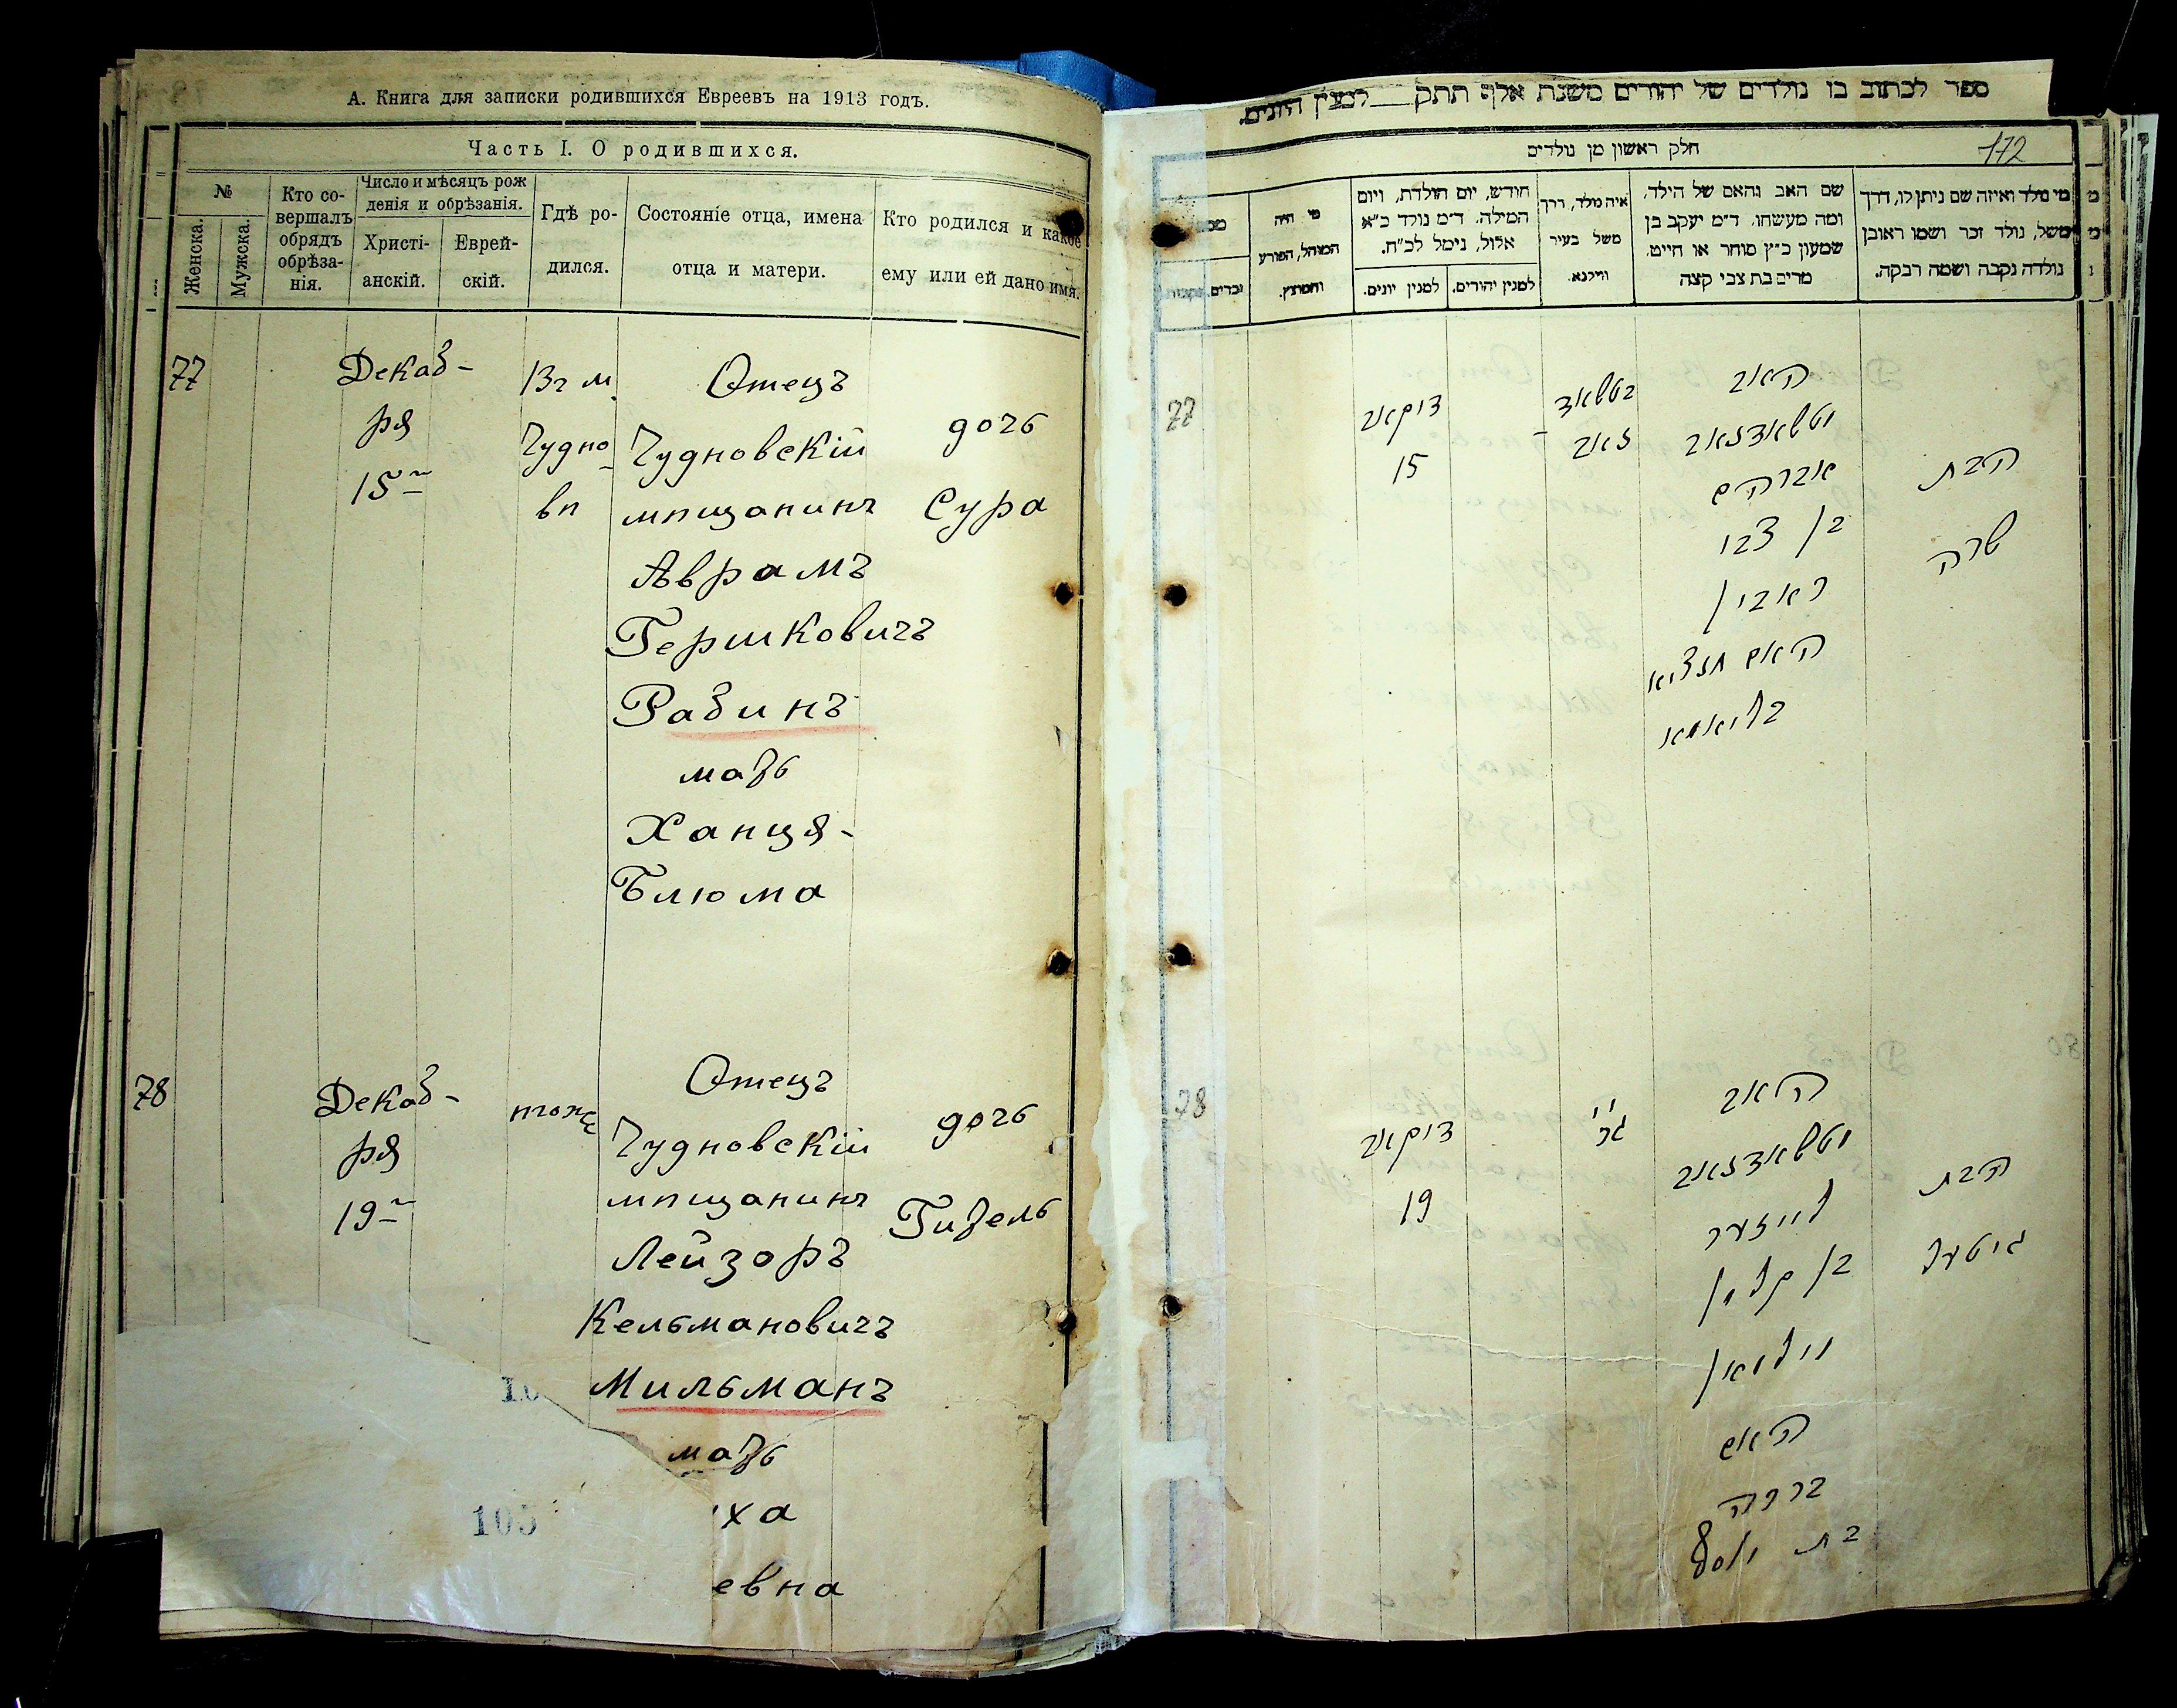 А. Книга для записки родившихся Евреевъ на 1913 годъ.
Часть I. О родившихся.
№
Женска.
Мужска.
Кто со-
вершалъ
обрядъ
обрѣза-
нія.
Число и мѣсяцъ рож
денія и обрѣзанія.
Христі-
анскій.
Еврей-
скій.
Гдѣ ро-
дился.
Состояніе отца, имена
отца и матери.
Кто родился и какое
ему или ей дано имя.
77
Декаб-
ря
15
Чудно
вѣ
Отецъ
Чудновскій
мѣщанинъ
Аврамъ
Гершковичъ
Рабинъ
мать
Ханця-
Блюма
дочь
Сура
78
Декаб-
ря
19
тоже
Отецъ
Чудновскій
мѣщанинъ
Лейзоръ
Кельмановичъ
Мильманъ
мать
ха
евна
дочь
Гитель
105
ספר לכתוב בו נולדים של יהודים משנת אלף תתק למנין היונים.
172
חלק ראשון מן נולדים
מי נולד ואיזה שם ניתן לו, דרך
משל, נולד זכר ושמו ראובן
נולדה נקבה ושמה רבקה.
שם האב והאם של הילד,
ומה מעשהו. ד״מ יעקב בן
שמעון כ״ץ סוחר או חייט,
מרים בת צבי קצה
איה נולד, דרך
משל בעיר
ווילנא.
חודש, יום הולדת, ויום
המילה. ד״מ נולד כ״א
אלול, נימל לכ״ח.
למנין יהודים.
למנין יונים.
מי היה
המוהל, הפורע
והמוצץ.
זכרים.
77
15
האב
אברהם
בן צבי
ראבין
האם חנציא
בליומא
הבת
שרה
78
19
האב
לייזער
בן קלמן
מילמאן
האם
ברכה
בת יוסף
הבת
גיטעל